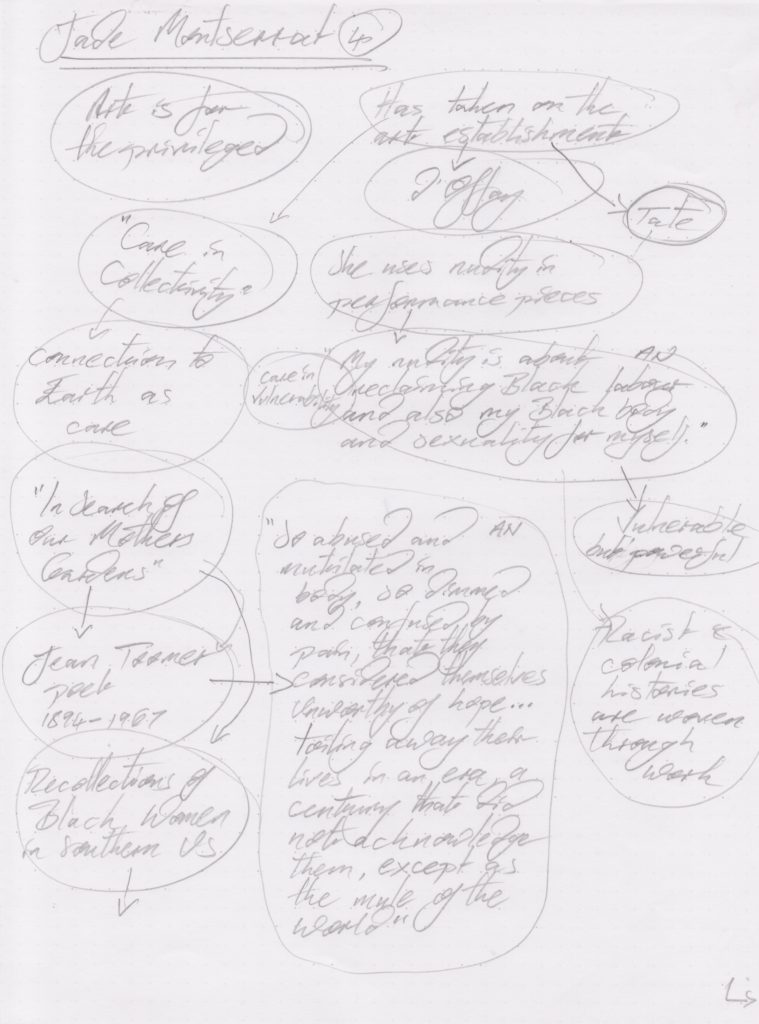 Jade Montserrat 4
Arts is for
the privileged
Has taken on the
arts establishment
D'Offay
Tate
"Care in
Collectivity"
She uses nudity in
performance pieces
Connection to
Earth as
care
care in
vulnerability
"My nudity is about AN
reclaiming Black labour
and also my Black body
and sexuality for myself."
"In Search of
our Mothers
Gardens"
Vulnerable
but powerful
"So abused and AN
mutilated in
body, so dimmed
and confused by
pain, that they
considered themselves
unworthy of hope...
toiling away their
lives in an era, a
century that did
not acknowledge
them, except as
the mule of the
world"
Jean Toomer
poet
1894-1967
Racist &
colonial
histories
are woven
through
work
Recollections of
Black Women
in Southern US